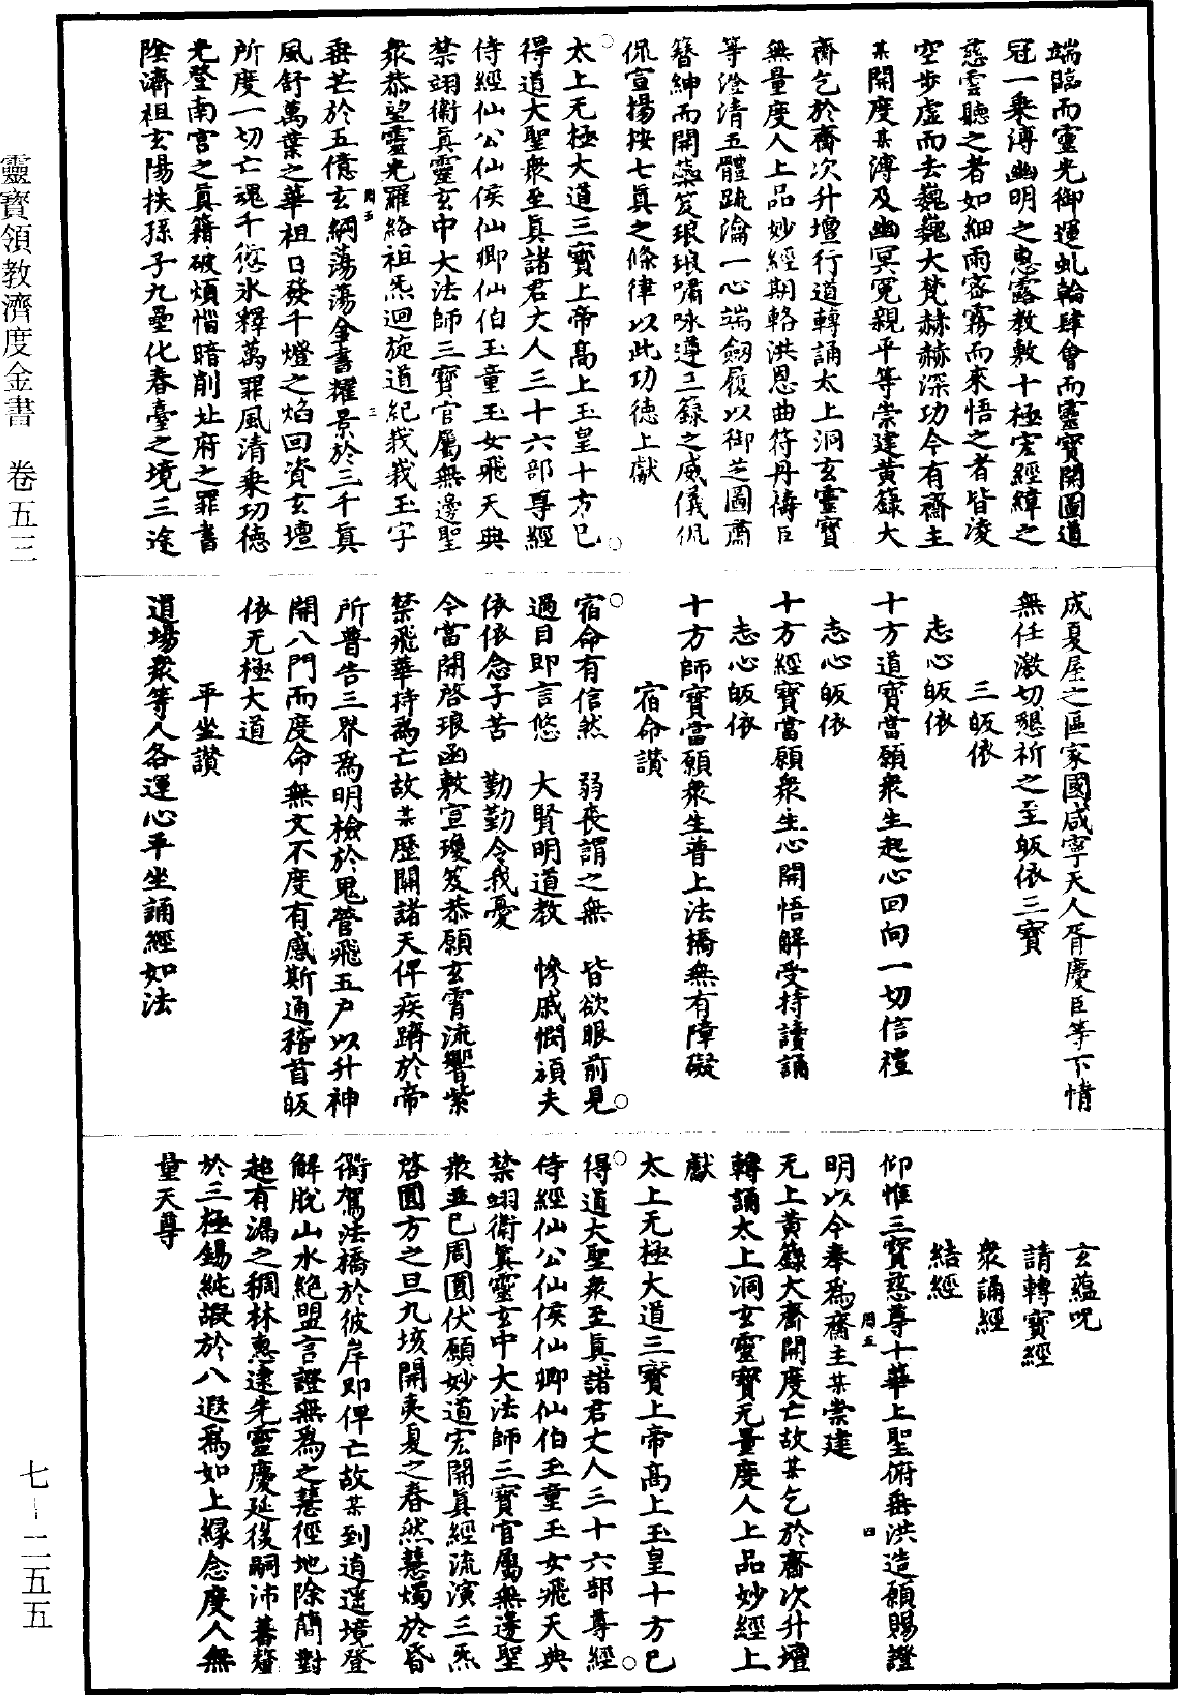 端臨而靈光御運虬輪肆會而靈寶開圖道
冠一乘溥幽明之惠露教敷十極宏經緯之
慈雲聽之者如細雨密霧而來悟之者皆淩
空步虛而去巍巍大梵赫赫深功今有齋主
某開度某溥及幽冥冤親平等崇建黃籙大
齋乞於齋次升壇行道轉誦太上洞玄靈寶
無量度人上品妙經期輅洪恩曲符丹禱臣
等澄清五體疏瀹一心端劒履以御芝圖肅
簪紳而開蘂笈琅琅嘯咏遵三籙之威儀侃
侃宣揚按七真之條律以此功德上獻
太上无極大道三寶上帝高上玉皇十方已
得道大聖衆至真諸君丈人三十六部尊經
侍經仙公仙侯仙卿仙伯玉童玉女飛天典
禁翊衛真靈玄中大法師三寶官屬無邊聖
衆恭望靈光羅絡祖炁迴旋道紀峩峩玉字
垂芒於五億玄綱蕩蕩金書耀景於三千真
風舒萬葉之華祖日發千燈之焰回資玄壇
所度一切亡魂千愆氷釋萬罪風清乘功德
光登南宮之真籍破煩惱暗削北府之罪書
陰濟祖玄陽扶孫子九壘化春臺之境三途
成夏屋之區家國咸寧天人胥慶臣等下情
無任激切懇祈之至皈依三寶
三皈依
志心皈依
十方道寶當願衆生起心回向一切信禮
志心皈依
十方經寶當願衆生心開悟解受持讀誦
志心皈依
十方師寶當願衆生普上法橋無有障礙
宿命讚
宿命有信然　弱喪謂之無　皆欲眼前見
過目即言悠　大賢明道教　慘戚憫頑夫
依依念子苦　勤勤令我憂
今當開啓琅函敷宣瓊笈恭願玄霄流響紫
禁飛華持爲亡故某歷關諸天俾疾躋於帝
所普告三界爲明檢於鬼營飛五戶以升神
開八門而度命無文不度有感斯通稽首皈
依无極大道
平坐讚
道場衆等人各運心平坐誦經如法
玄蘊呪
請轉寶經
衆誦經
結經
仰惟三寶慈尊十華上聖俯垂洪造願賜證
明以今奉爲齋主某崇建
无上黃籙大齋開度亡故某乞於齋次升壇
轉誦太上洞玄靈寶无量度人上品妙經上
獻
太上无極大道三寶上帝高上玉皇十方已
得道大聖衆至真諸君丈人三十六部尊經
侍經仙公仙侯仙卿仙伯玉童玉女飛天典
禁翊衛真靈玄中大法師三寶官屬無邊聖
衆並已周圓伏願妙道宏開真經流演三炁
啓圓方之旦九垓開夷夏之春然慧燭於昏
衢駕法橋於彼岸即俾亡故某到逍遥境登
解脫山水絕盟言證無爲之慧徑地除簡對
超有漏之稠林惠逮先靈慶延後嗣沛蕃釐
於三極錫純嘏於八遐爲如上緣念度人無
量天尊
靈寶領教濟度金書　卷五三
七-二五五